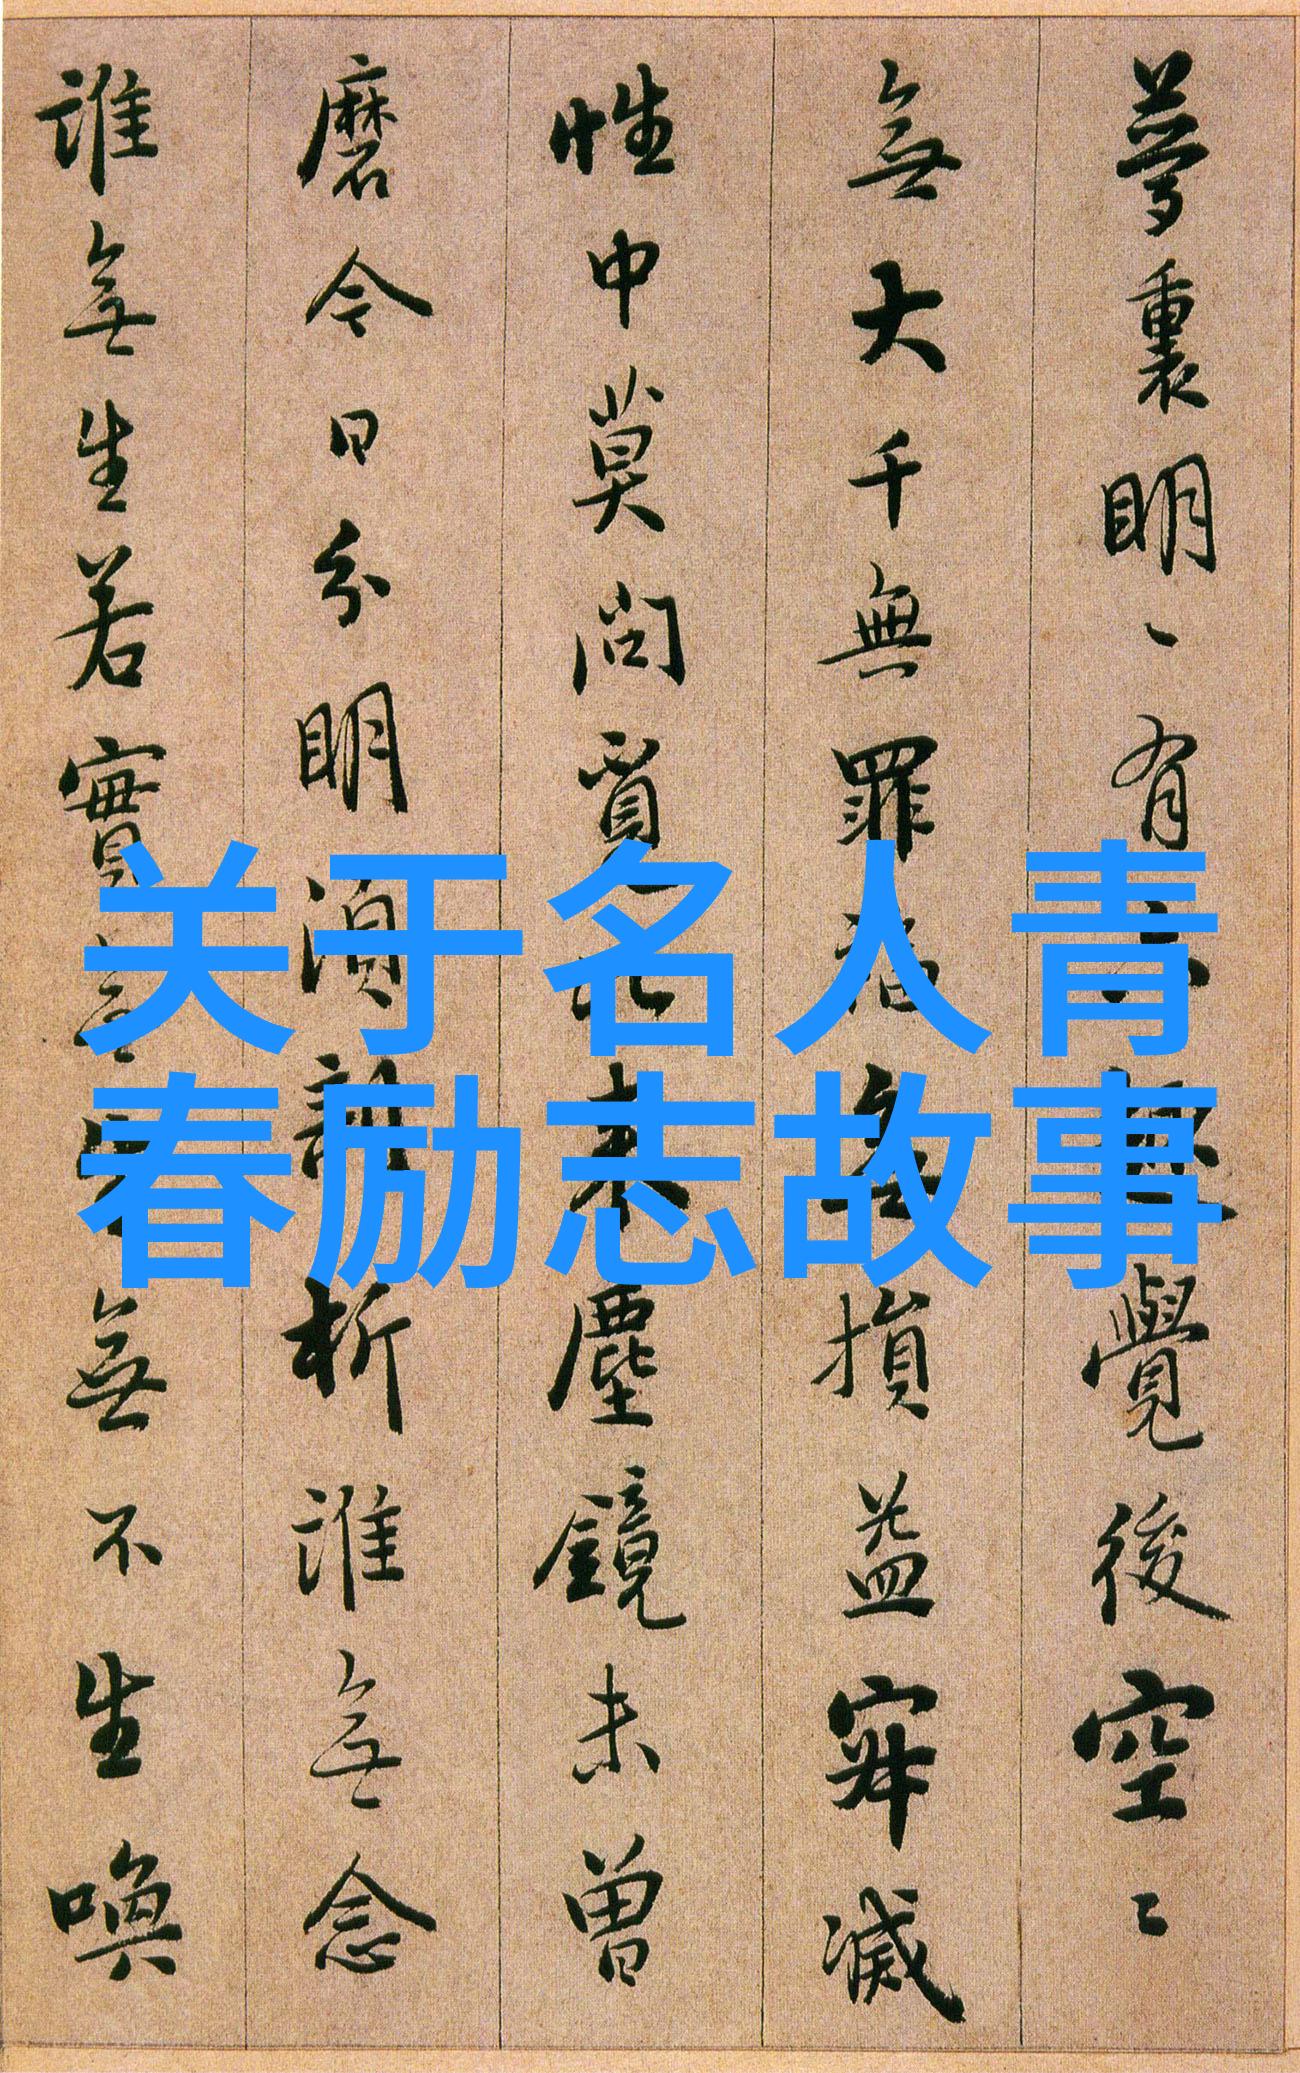 夢裏明〻有六趣覺後空〻
無大千無罪福無損益寂滅
性中莫問覓比來塵鏡未曾
磨今日分明須剖析誰無念
誰無生若實無生無不生喚
关于名人青
春励志故事